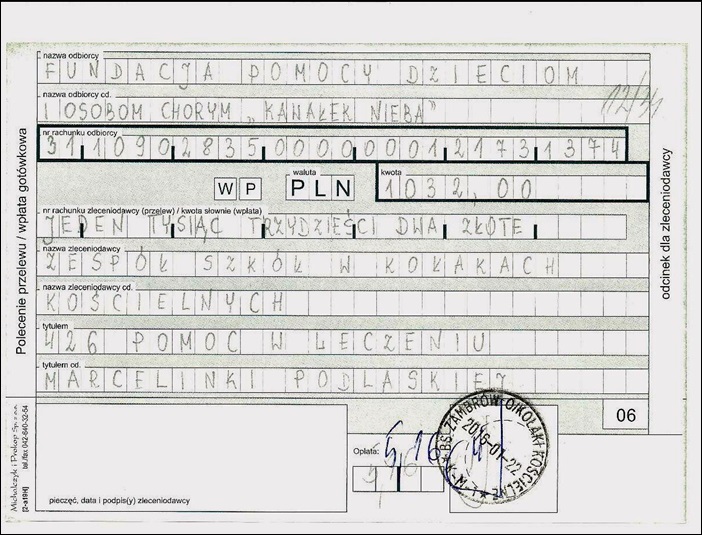 nazwa odbiorcy
FUNDACJA POMOCY DZIECIOM
nazwa odbiorcy cd.
I OSOBOM CHORYM „KANAŁEK NIEBA"
12/31
nr rachunku odbiorcy
31 1090 2835 0000 0001 2173 1374
waluta
kwota
WP PLN 1032,00
nr rachunku zleceniodawcy (przelew) / kwota słownie (wpłata)
JEDEN TYSIĄC TRZYDZIEŚCI DWA ZŁOTE
nazwa zleceniodawcy
ZESPÓŁ SZKÓŁ W KOŁAKACH
nazwa zleceniodawcy cd.
KOŚCIELNYCH
tytułem
426 POMOC W LECZENIU
tytułem cd.
MARCELINKI PODLASKIEJ
06
Opłata:
5,16
pieczęć, data i podpis(y) zleceniodawcy
BS ZAMBRÓW O/KOŁAKI KOŚCIELNE
2016-01-22
K-W-1
Polecenie przelewu / wpłata gotówkowa
odcinek dla zleceniodawcy
Michalczyk i Prokop Sp. z o.o.
tel./fax 042-640-32-64